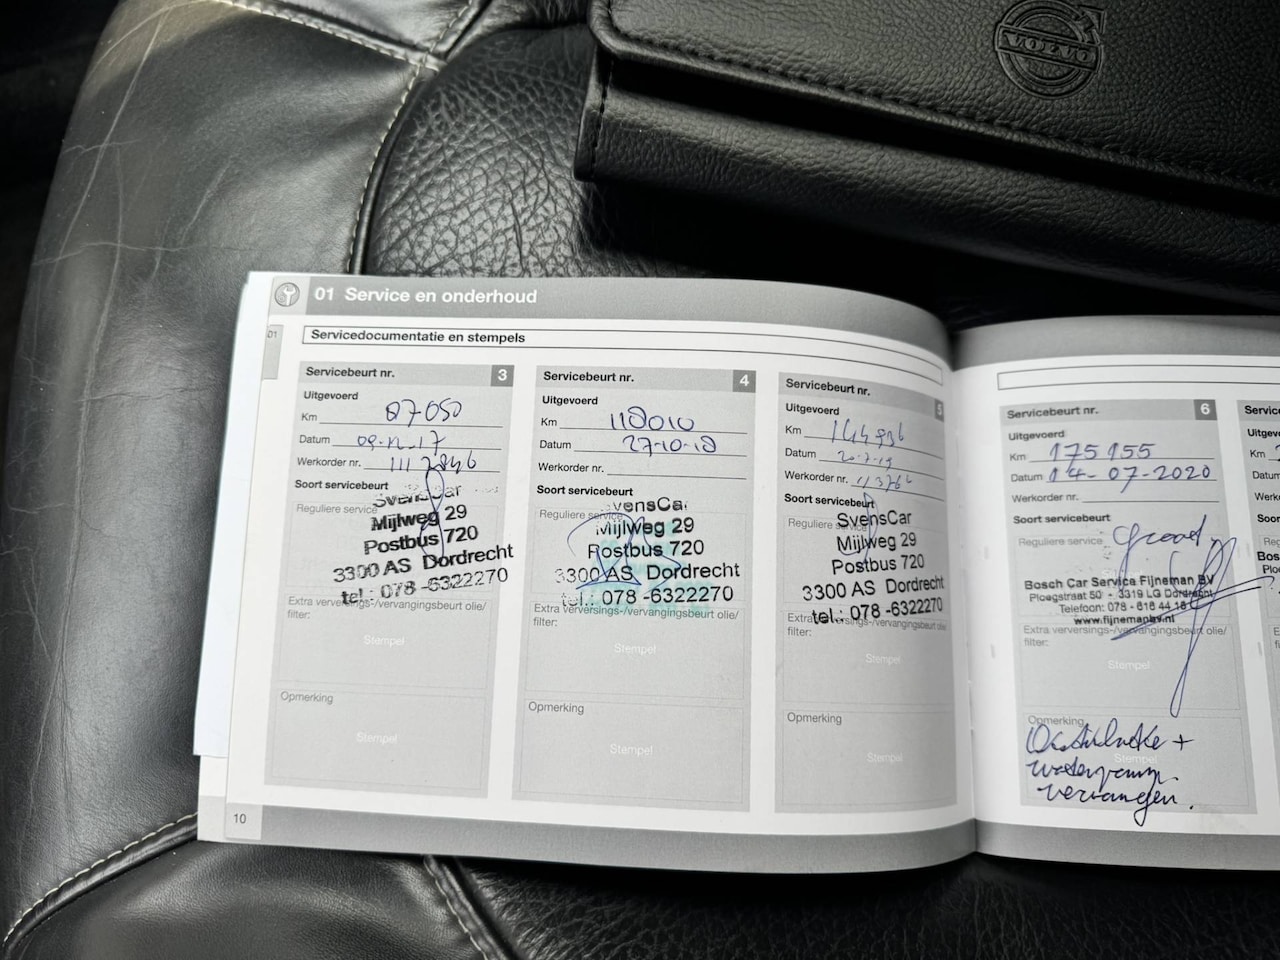 VOLVO
01 Service en onderhoud
01
Servicedocumentatie en stempels
Servicebeurt nr. 3
Uitgevoerd
Km 87050
Datum
Werkorder nr.
Soort servicebeurt
Reguliere service
SvensCar
Mijlweg 29
Postbus 720
3300 AS Dordrecht
tel.: 078 -6322270
Extra verversings-/vervangingsbeurt olie/
filter:
Stempel
Opmerking
Stempel
10
Servicebeurt nr. 4
Uitgevoerd
Km 118010
Datum 27-10-18
Werkorder nr.
Soort servicebeurt
Reguliere service
SvensCar
Mijlweg 29
Postbus 720
3300 AS Dordrecht
tel.: 078 -6322270
Extra verversings-/vervangingsbeurt olie/
filter:
Stempel
Opmerking
Stempel
Servicebeurt nr. 5
Uitgevoerd
Km
Datum
Werkorder nr.
Soort servicebeurt
Reguliere service
SvensCar
Mijlweg 29
Postbus 720
3300 AS Dordrecht
tel.: 078 -6322270
Extra verversings-/vervangingsbeurt olie/
filter:
Stempel
Opmerking
Stempel
Servicebeurt nr. 6
Uitgevoerd
Km 175155
Datum 14-07-2020
Werkorder nr.
Soort servicebeurt
Reguliere service
Bosch Car Service Fijneman BV
Ploegstraat 50 - 3319 LG Dordrecht
Telefoon: 078 - 616 44 18
www.fijnemanbv.nl
Extra verversings-/vervangingsbeurt olie/
filter:
Stempel
Opmerking
Stempel
vervangen.